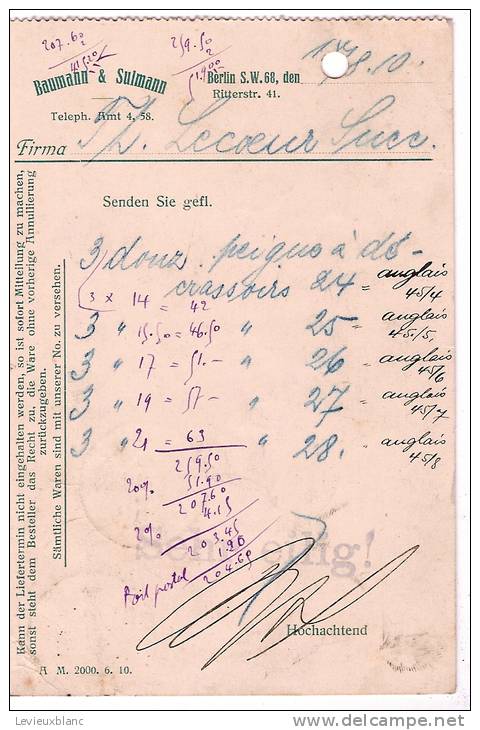 207.60
2
415.20
259.50
2
51900
Baumann & Sulmann
Berlin S.W. 68, den 8.10.
Ritterstr. 41.
Teleph. Amt 4, 58.
Firma Th. Lecoeur Succ.
Senden Sie gefl.
3 douz. peignes à dé-
crassoirs 24 = anglais 45/4
3 x 14 = 42
3 " 15.50 = 46.50 " 25 = anglais 45/5
3 " 17 = 51.- " 26 = anglais 45/6
3 " 19 = 57- " 27 = anglais 45/7
3 " 21 = 63 " 28. = anglais 45/8
259.50
20% 51.90
207.60
2% 4.15
203.45
Port postal 1.20
204.65
Sehr eilig!
Hochachtend
A M. 2000. 6. 10.
Kann der Liefertermin nicht eingehalten werden, so ist sofort Mitteilung zu machen,
sonst steht dem Besteller das Recht zu, die Ware ohne vorherige Annullierung
zurückzugeben.
Sämtliche Waren sind mit unserer No. zu versehen.
Levieuxblanc
delcampe.net